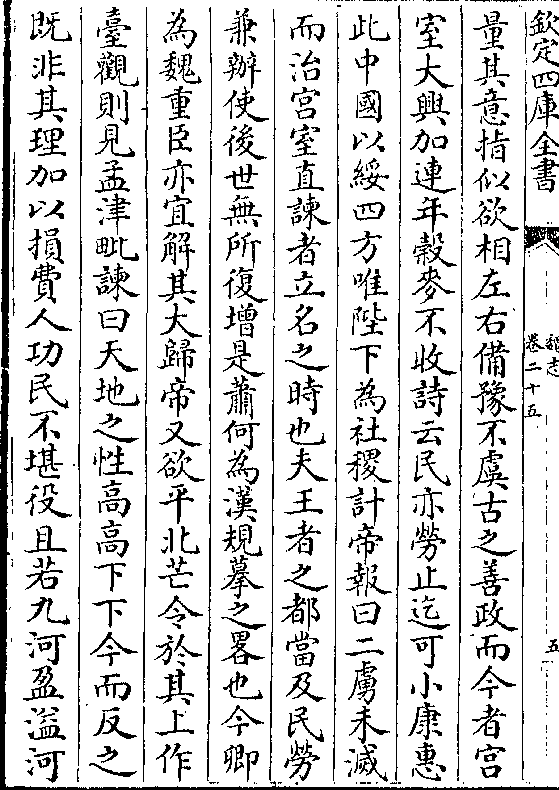 欽定四庫全書
魏志
卷二十五
五
量其意指似欲相左右備豫不虞古之善政而今者宫
室大興加連年榖麥不收詩云民亦勞止迄可小康惠
此中國以綏四方唯陛下為社稷計帝報曰二虜未滅
而治宫室直諫者立名之時也夫王者之都當及民勞
兼辦使後世無所復增是蕭何為漢規摹之畧也今卿
為魏重臣亦宜解其大歸帝又欲平北芒令於其上作
臺觀則見孟津毗諫曰天地之性高高下下今而反之
既非其理加以損費人功民不堪役且若九河盈溢河